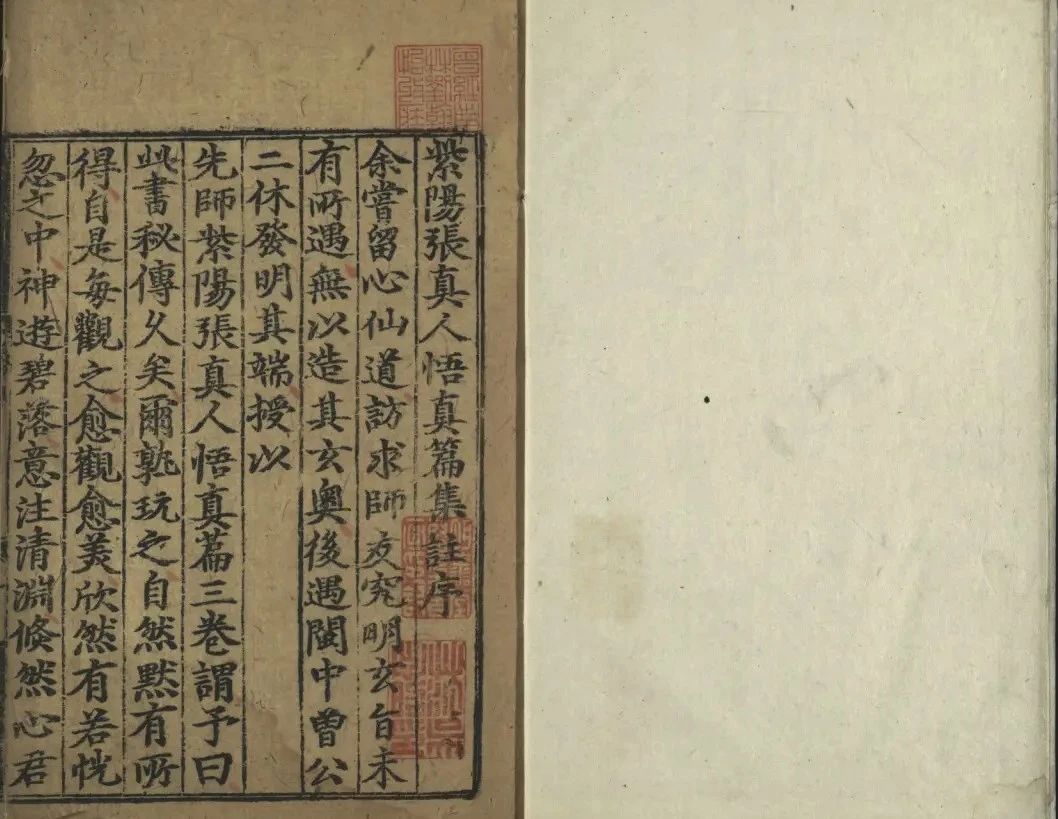 紫陽張真人悟真篇集註序
余嘗留心仙道訪求師友究明玄旨未
有所遇無以造其玄奧後遇閩中曾公
二休發明其端授以
先師紫陽張真人悟真篇三卷謂予曰
此書秘傳久矣爾熟玩之自然默有所
得自是每觀之愈觀愈美欣然有若恍
忽之中神遊碧落意注清淵倏然心君